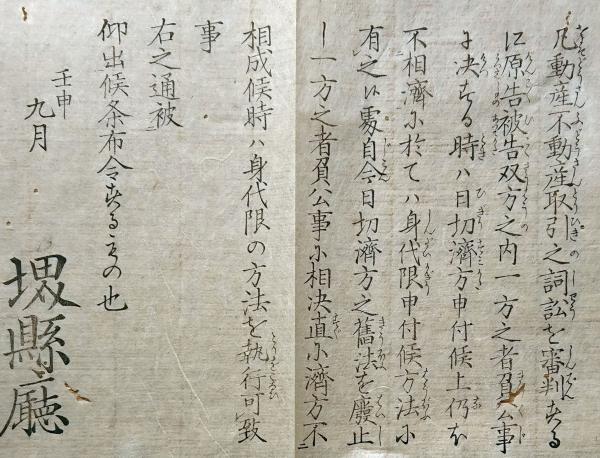 凡動産不動産取引之詞訟を審判する
に原告被告双方之内一方之者負公事
に决する時ハ日切濟方申付候上仍ほ
不相濟に於てハ身代限申付候方法に
有之候處自今日切濟方之舊法を廢止
し一方之者負公事に相决直に濟方不
相成候時ハ身代限の方法を執行可致
事
右之通被
仰出候条布令するもの也
壬申
九月
堺縣廳